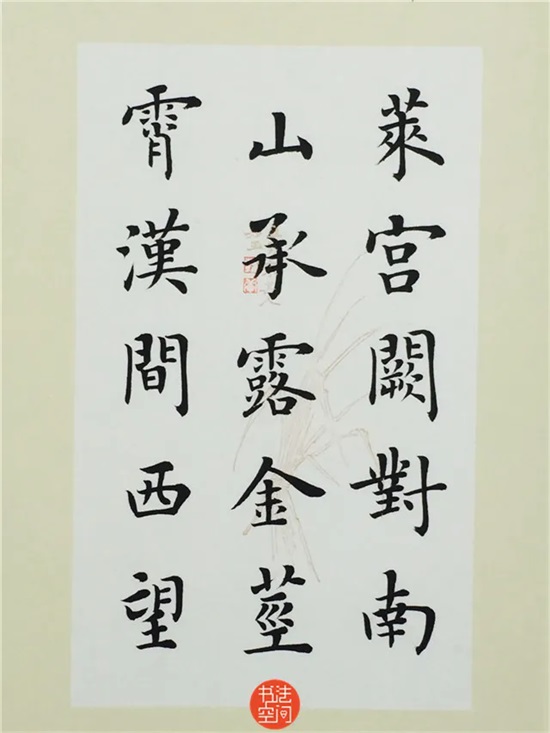 萊宮闕對南
山承露金莖
霄漢間西望
书法
空间